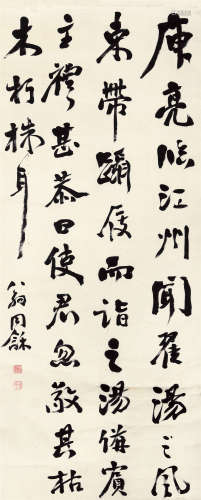 庾亮臨江州聞翟湯之風
束帶躡屐而詣之湯備賓
主禮甚恭曰使君忽敬其枯
木朽株耳
翁同龢